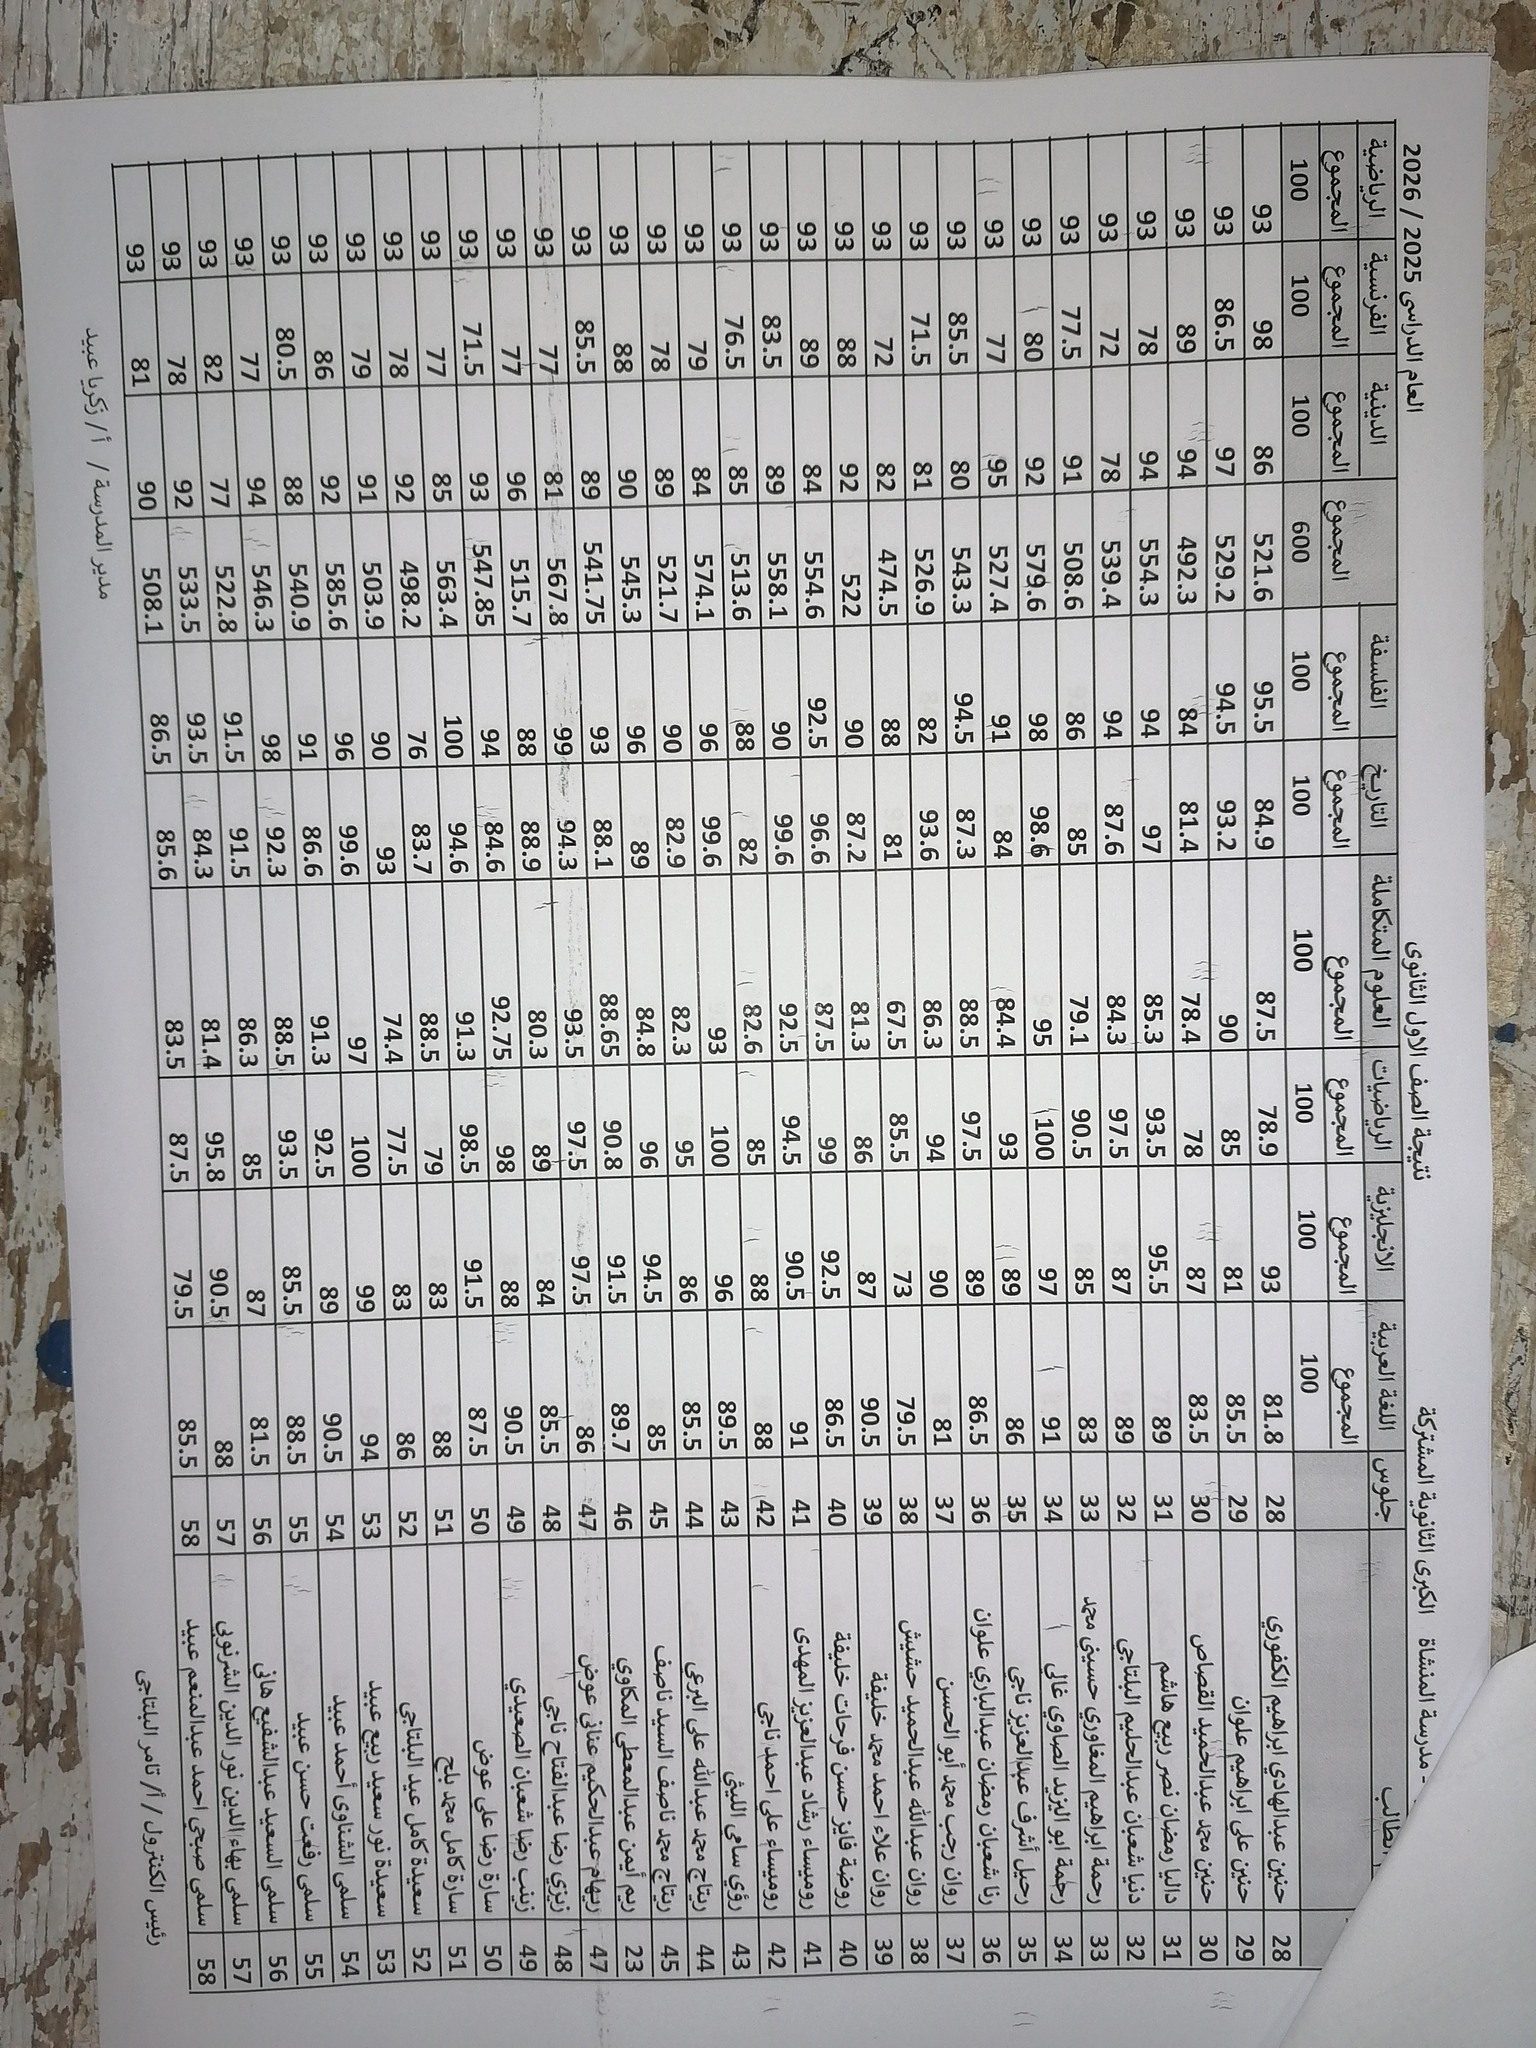 - مدرسة المنشاة الكبرى الثانوية المشتركة نتيجة الصف الاول الثانوى العام الدراسى 2025 / 2026
الطالب جلوس اللغة العربية الانجليزية الرياضيات العلوم المتكاملة التاريخ الفلسفة المجموع الدينية الفرنسية الرياضية
المجموع المجموع المجموع المجموع المجموع المجموع المجموع المجموع المجموع
100 100 100 100 100 100 600 100 100 100
28 حنين عبدالهادي ابراهيم الكفوري 28 81.8 93 78.9 87.5 84.9 95.5 521.6 86 98 93
29 حنين على ابراهيم علوان 29 85.5 81 85 90 93.2 94.5 529.2 97 86.5 93
30 حنين محمد عبدالحميد القصاص 30 83.5 87 78 78.4 81.4 84 492.3 94 89 93
31 داليا رمضان نصر ربيع هاشم 31 89 95.5 93.5 85.3 97 94 554.3 94 78 93
32 دنيا شعبان عبدالحليم البلتاجي 32 89 87 97.5 84.3 87.6 94 539.4 78 72 93
33 رحمة ابراهيم المغاوري حسيني محمد 33 83 85 90.5 79.1 85 86 508.6 91 77.5 93
34 رحمة ابو اليزيد الصاوي غالى 34 91 97 100 95 98.6 98 579.6 92 80 93
35 رحيل أشرف عبدالعزيز ناجي 35 86 89 93 84.4 84 91 527.4 95 77 93
36 رنا شعبان رمضان عبدالباري علوان 36 86.5 89 97.5 88.5 87.3 94.5 543.3 80 85.5 93
37 روان رجب محمد أبو الحسن 37 81 90 94 86.3 93.6 82 526.9 81 71.5 93
38 روان عبدالله عبدالحميد حشيش 38 79.5 73 85.5 67.5 81 88 474.5 82 72 93
39 روان علاء احمد محمد خليفة 39 90.5 87 86 81.3 87.2 90 522 92 88 93
40 روضة فايز حسن فرحات خليفة 40 86.5 92.5 99 87.5 96.6 92.5 554.6 84 89 93
41 روميساء رشاد عبدالعزيز المهدى 41 91 90.5 94.5 92.5 99.6 90 558.1 89 83.5 93
42 روميساء على احمد ناجي 42 88 88 85 82.6 82 88 513.6 85 76.5 93
43 رؤي سامى الليثى 43 89.5 96 100 93 99.6 96 574.1 84 79 93
44 ريتاج محمد عبدالله على البرعي 44 85.5 86 95 82.3 82.9 90 521.7 89 78 93
45 ريتاج محمد ناصف السيد ناصف 45 85 94.5 96 84.8 89 96 545.3 90 88 93
23 ريم أيمن عبدالمعطى المكاوي 46 89.7 91.5 90.8 88.65 88.1 93 541.75 89 85.5 93
47 ريهام عبدالحكيم عنانى عوض 47 86 97.5 97.5 93.5 94.3 99 567.8 81 77 93
48 زيزي رضا عبدالفتاح ناجي 48 85.5 84 89 80.3 88.9 88 515.7 96 77 93
49 زينب رضا شعبان الصعيدي 49 90.5 88 98 92.75 84.6 94 547.85 93 71.5 93
50 سارة رضا على عوض 50 87.5 91.5 98.5 91.3 94.6 100 563.4 85 77 93
51 سارة كامل محمد بلح 51 88 83 79 88.5 83.7 76 498.2 92 78 93
52 سعيدة كامل عيد البلتاجي 52 86 83 77.5 74.4 93 90 503.9 91 79 93
53 سعيدة نور سعيد ربيع عبيد 53 94 99 100 97 99.6 96 585.6 92 86 93
54 سلمى الشناوى أحمد عبيد 54 90.5 89 92.5 91.3 86.6 91 540.9 88 80.5 93
55 سلمى رفعت حسن عبيد 55 88.5 85.5 93.5 88.5 92.3 98 546.3 94 77 93
56 سلمى السعيد عبدالشفيع هانى 56 81.5 87 85 86.3 91.5 91.5 522.8 77 82 93
57 سلمى بهاء الدين نور الدين الشرنوبى 57 88 90.5 95.8 81.4 84.3 93.5 533.5 92 78 93
58 سلمى صبحى احمد عبدالمنعم عبيد 58 85.5 79.5 87.5 83.5 85.6 86.5 508.1 90 81 93
رئيس الكنترول / أ/ تامر البلتاجى مدير المدرسة / أ / زكريا عبيد